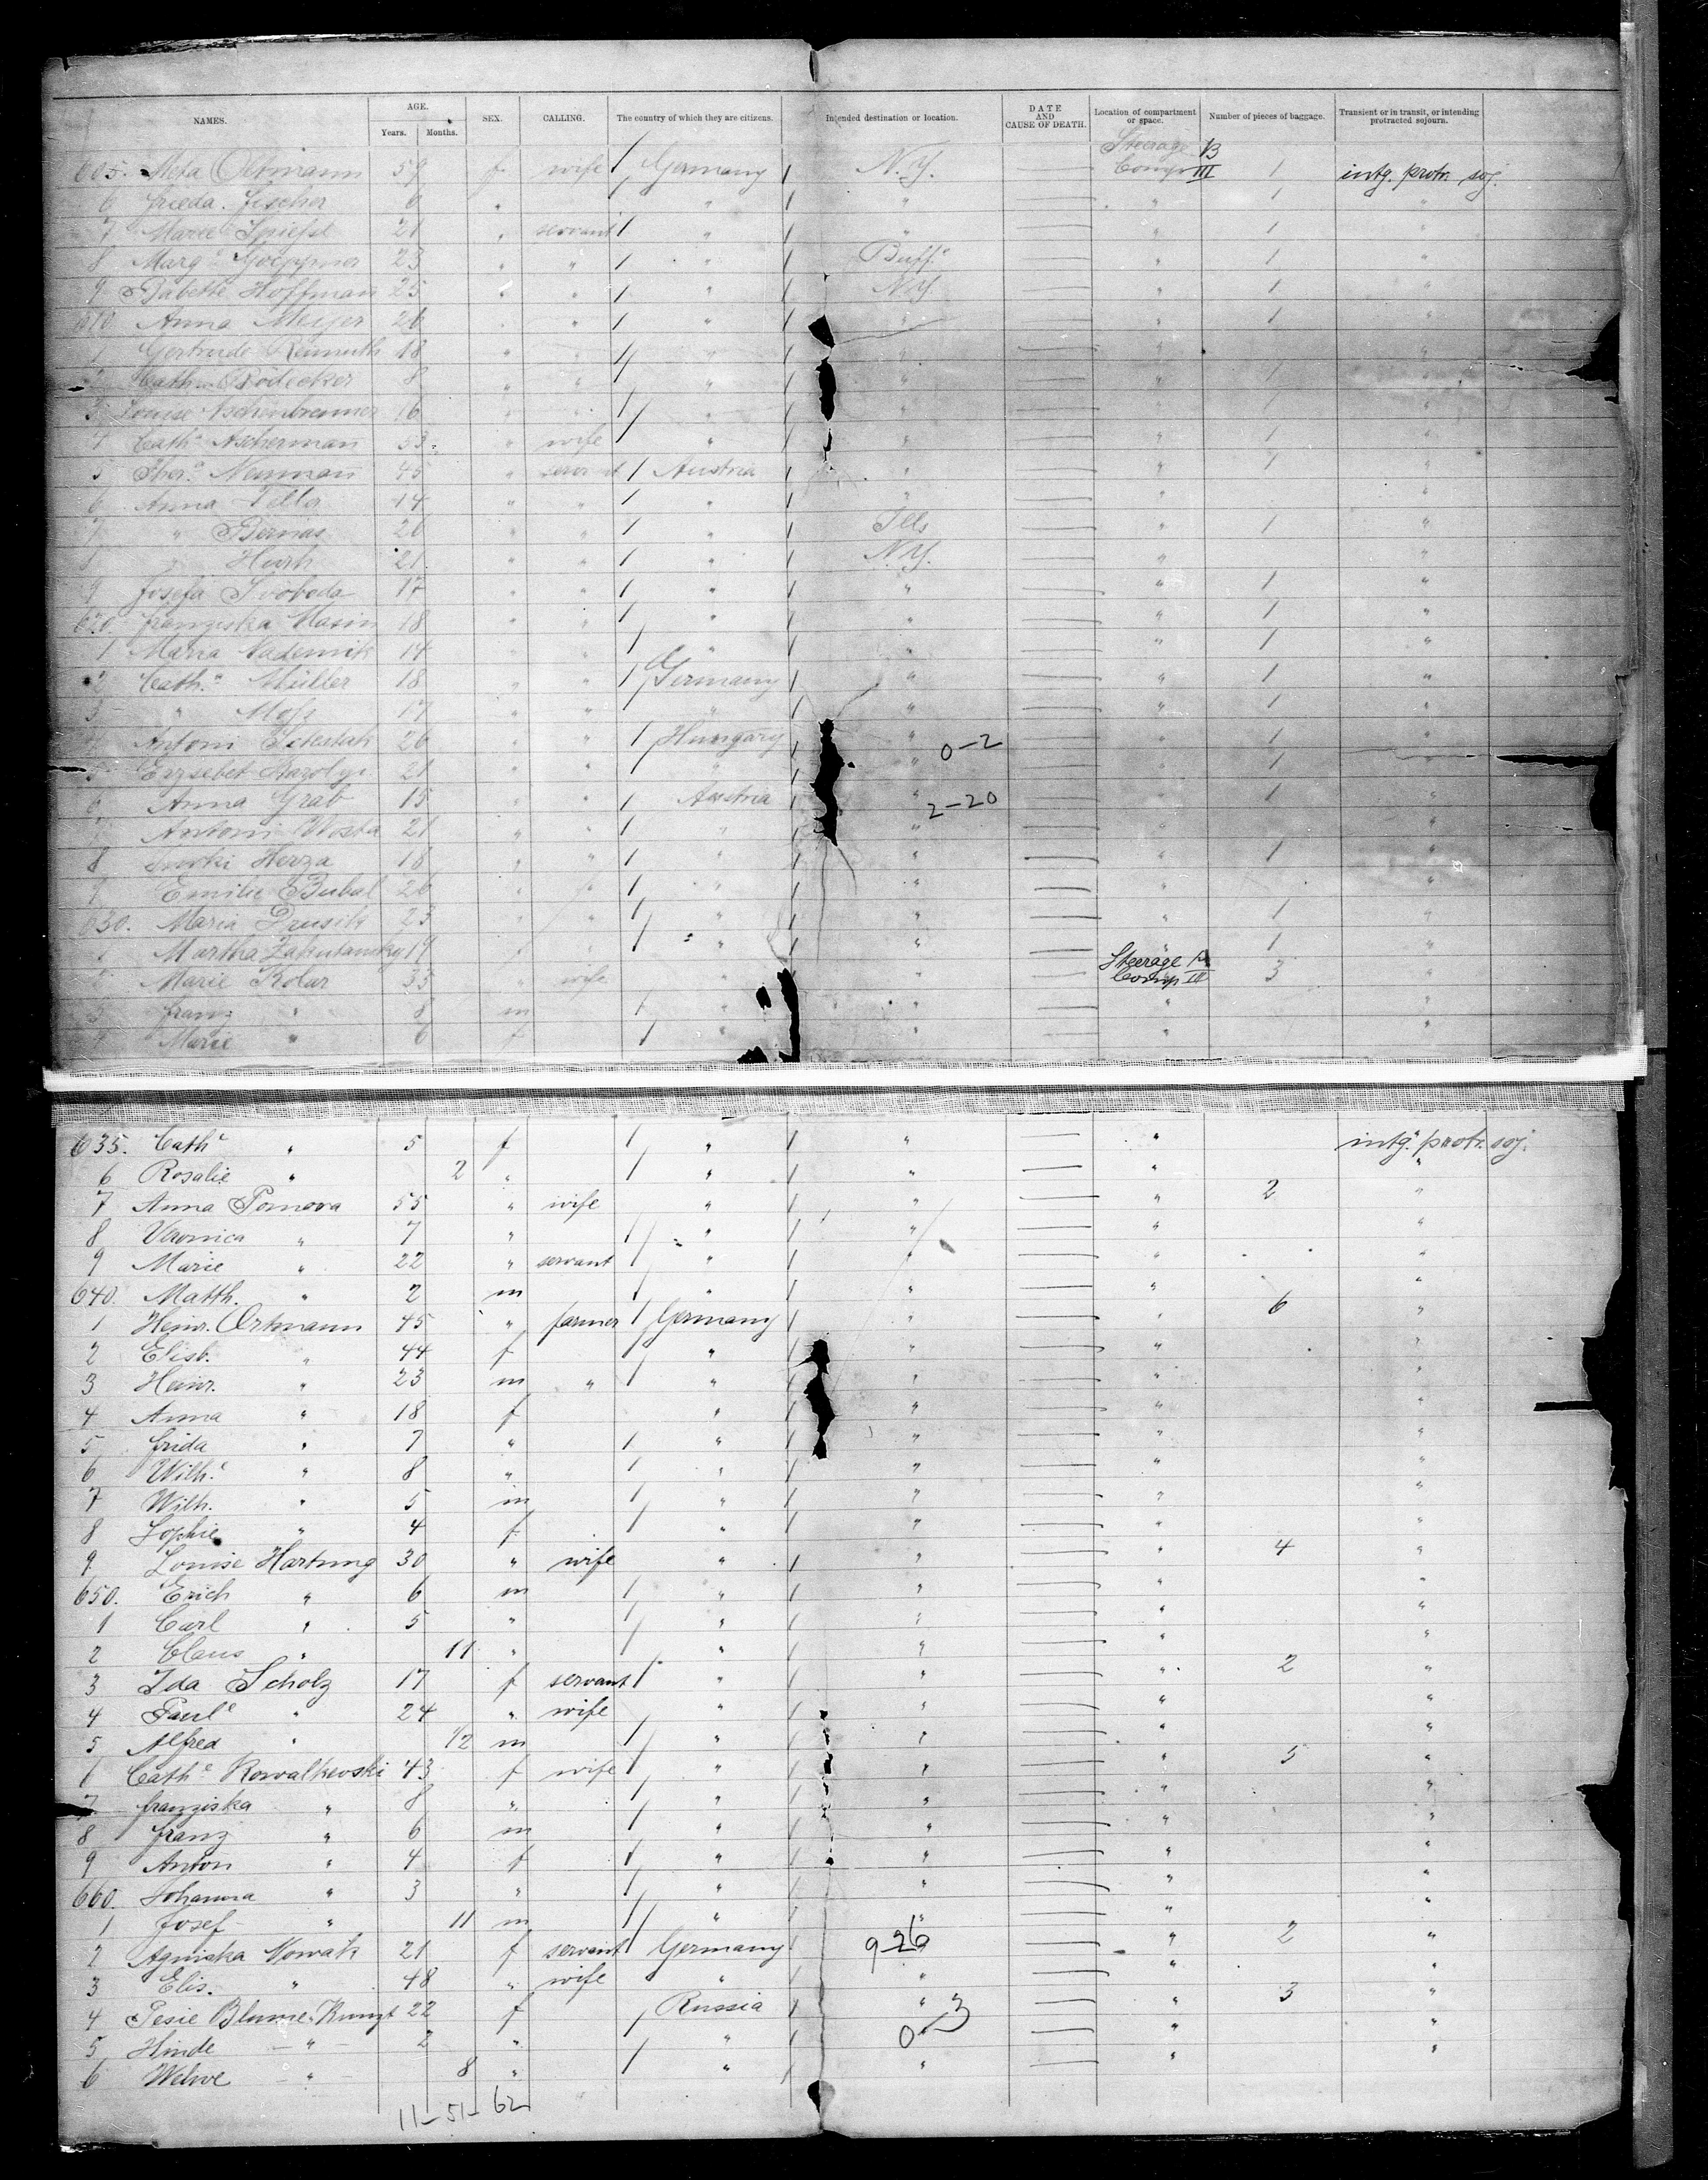 NAMES. AGE. Years. Months. SEX. CALLING. The country of which they are citizens. Intended destination or location. DATE AND CAUSE OF DEATH. Location of compartment or space. Number of pieces of baggage. Transient or in transit, or intending protracted sojourn.
605. Meta Oltmann 59 f wife / Germany / N.Y. — Steerage B Comp III 1 intg. protr. soj.
6 Frieda Fischer 6 " / " / " — " 1 "
7 Marie 21 " servant / " / " — " 1 "
8 Marg. 23 " " / " / Buff. — " 1 "
9 Babette Hoffman 25 " " / " / N.Y. — " 1 "
610. Anna Meyer 26 " / " / " — " 1 "
1 Gertrude 18 " " / " / " — " "
2 Cath. Rödecker 8 " " / " " — " 1 "
3 Louise Aschenbrenner 16 " " / " / " — " 1 "
4 Cath. Ascherman 53 " wife / " / " — " 1 "
5 Ther. Neuman 45 " servant / Austria / " — " 1 "
6 Anna 14 " " / " / " — " "
7 " Bernas 20 " " / " / Ills — " 1 "
8 " 21 " " / " / N.Y. — " "
9 Josefa Svoboda 17 " " / " / " — " 1 "
620. Franziska Masin 18 " " / " / " — " 1 "
1 Maria 14 " " / " / " — " 1 "
2 Cath. Müller 18 " " / Germany / " — " 1 "
3 " 17 " " " / " — " 1 "
4 Antoni 26 " " / Hungary / " 0-2 — " 1 "
5 Erzsebet Karolyi 21 " " / " / " — " 1 "
6 Anna Grab 15 " " / Austria / " 2-20 — " 1 "
7 Antoni Wosta 21 " " / " / " — " "
8 Herza 18 " " / " / " — " 1 "
9 Emilie Bubal 26 " " / " / " — " "
630. Maria Drusik 23 " " / " / " — " 1 "
1 Martha Zakutansky 19 " " / " / " — " 1 "
2 Marie Kolar 33 " wife " / " — Steerage A Comp III 3 "
3 Franz " 8 m / " " — " "
4 Marie " 6 f / " / " — " "
635. Cathe " 5 f / " / " — " intg. protr. soj.
6 Rosalie " 2 " / " / " — " "
7 Anna Pomora 55 " wife " / " — " 2 "
8 Veronica " 7 " / " / " — " "
9 Marie " 22 " servant / " / " — " "
640. Matth. " 2 m / " / " — " "
1 Heinr. Ortmann 45 " farmer / Germany / " — " 6 "
2 Elisb. " 44 f / " / " — " "
3 Heinr. " 23 m " / " / " — " "
4 Anna " 18 f " / " — " "
5 Frida " 7 " / " / " — " "
6 Wilhe " 8 " / " / " — " "
7 Wilh. " 5 m / " / " — " "
8 Sophie " 4 f / " / " — " "
9 Louise Hartung 30 " wife " / " — " 4 "
650. Erich " 6 m / " / " — " "
1 Carl " 5 " / " / " — " "
2 Claus " 11 " / " / " — " "
3 Ida Scholz 17 f servant / " / " — " 2 "
4 Paule " 24 " wife " / " — " "
5 Alfred " 1/2 m / " / " — " "
6 Cathe Kowalkewski 43 f wife / " / " — " 5 "
7 Franziska " 8 " / " / " — " "
8 Franz " 6 m / " / " — " "
9 Anton " 4 f / " / " — " "
660. Johanna " 3 " / " / " — " "
1 Josef " 11 m / " / " — " "
2 Agniska Nowak 21 f servant / Germany / 9-26 — " 2 "
3 Elis. " 48 " wife " / " — " "
4 Pesie Blume Kunzt 22 f / Russia / " — " 3 "
5 Hinde — " — 2 " / " / 0-3 — " "
6 Welwe — " — 8 " / " / " — " "
11-51-62